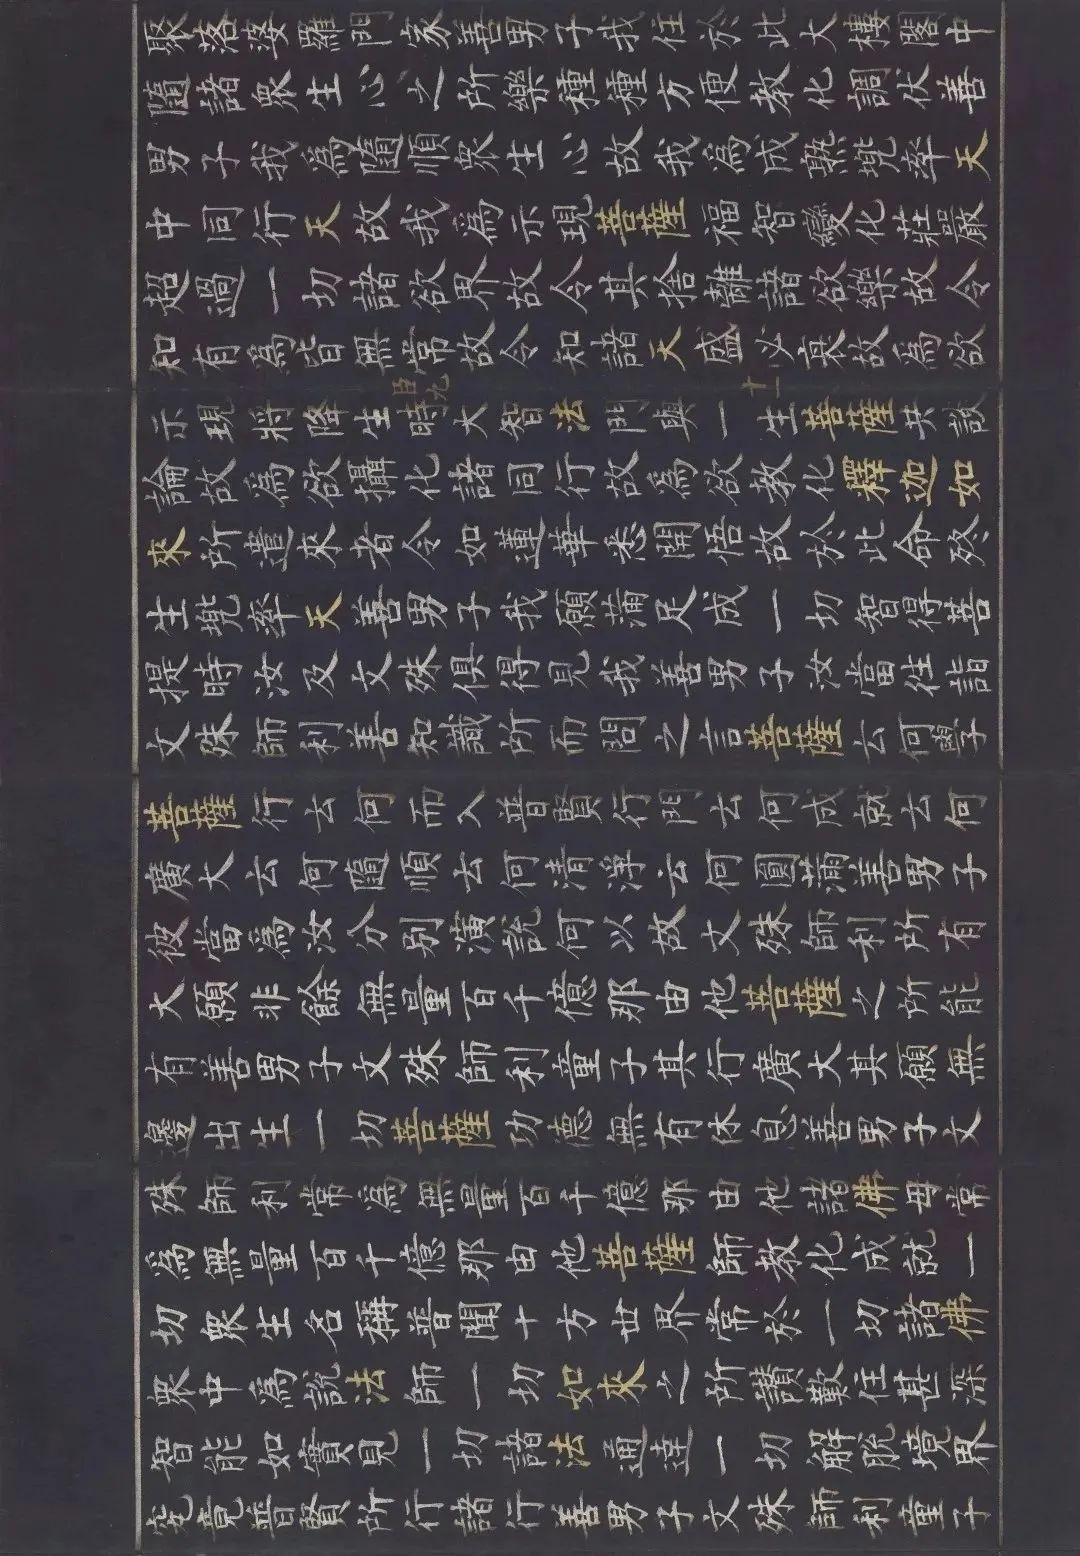 聚落婆羅門家善男子我住於此大樓閣中
隨諸衆生心之所樂種種方便教化調伏善
男子我爲隨順衆生心故我爲成熟兜率天
中同行天故我爲示現菩薩福智變化莊嚴
超過一切諸欲界故令其捨離諸欲樂故令
知有爲皆無常故令知諸天盛必衰故爲欲
示現將降生時大智法門與一生菩薩共談
論故爲欲攝化諸同行故爲欲教化釋迦如
來所遣來者令如蓮華悉開悟故於此命終
生兜率天善男子我願滿足成一切智得菩
提時汝及文殊俱得見我善男子汝當往詣
文殊師利善知識所而問之言菩薩云何學
菩薩行云何而入普賢行門云何成就云何
廣大云何隨順云何清淨云何圓滿善男子
彼當爲汝分別演說何以故文殊師利所有
大願非餘無量百千億那由他菩薩之所能
有善男子文殊師利童子其行廣大其願無
邊出生一切菩薩功德無有休息善男子文
殊師利常爲無量百千億那由他諸佛母常
爲無量百千億那由他菩薩師教化成就一
切衆生名稱普聞十方世界常於一切諸佛
衆中爲說法師一切如來之所讚歎住甚深
智能如實見一切諸法通達一切解脫境界
究竟普賢所行諸行善男子文殊師利童子